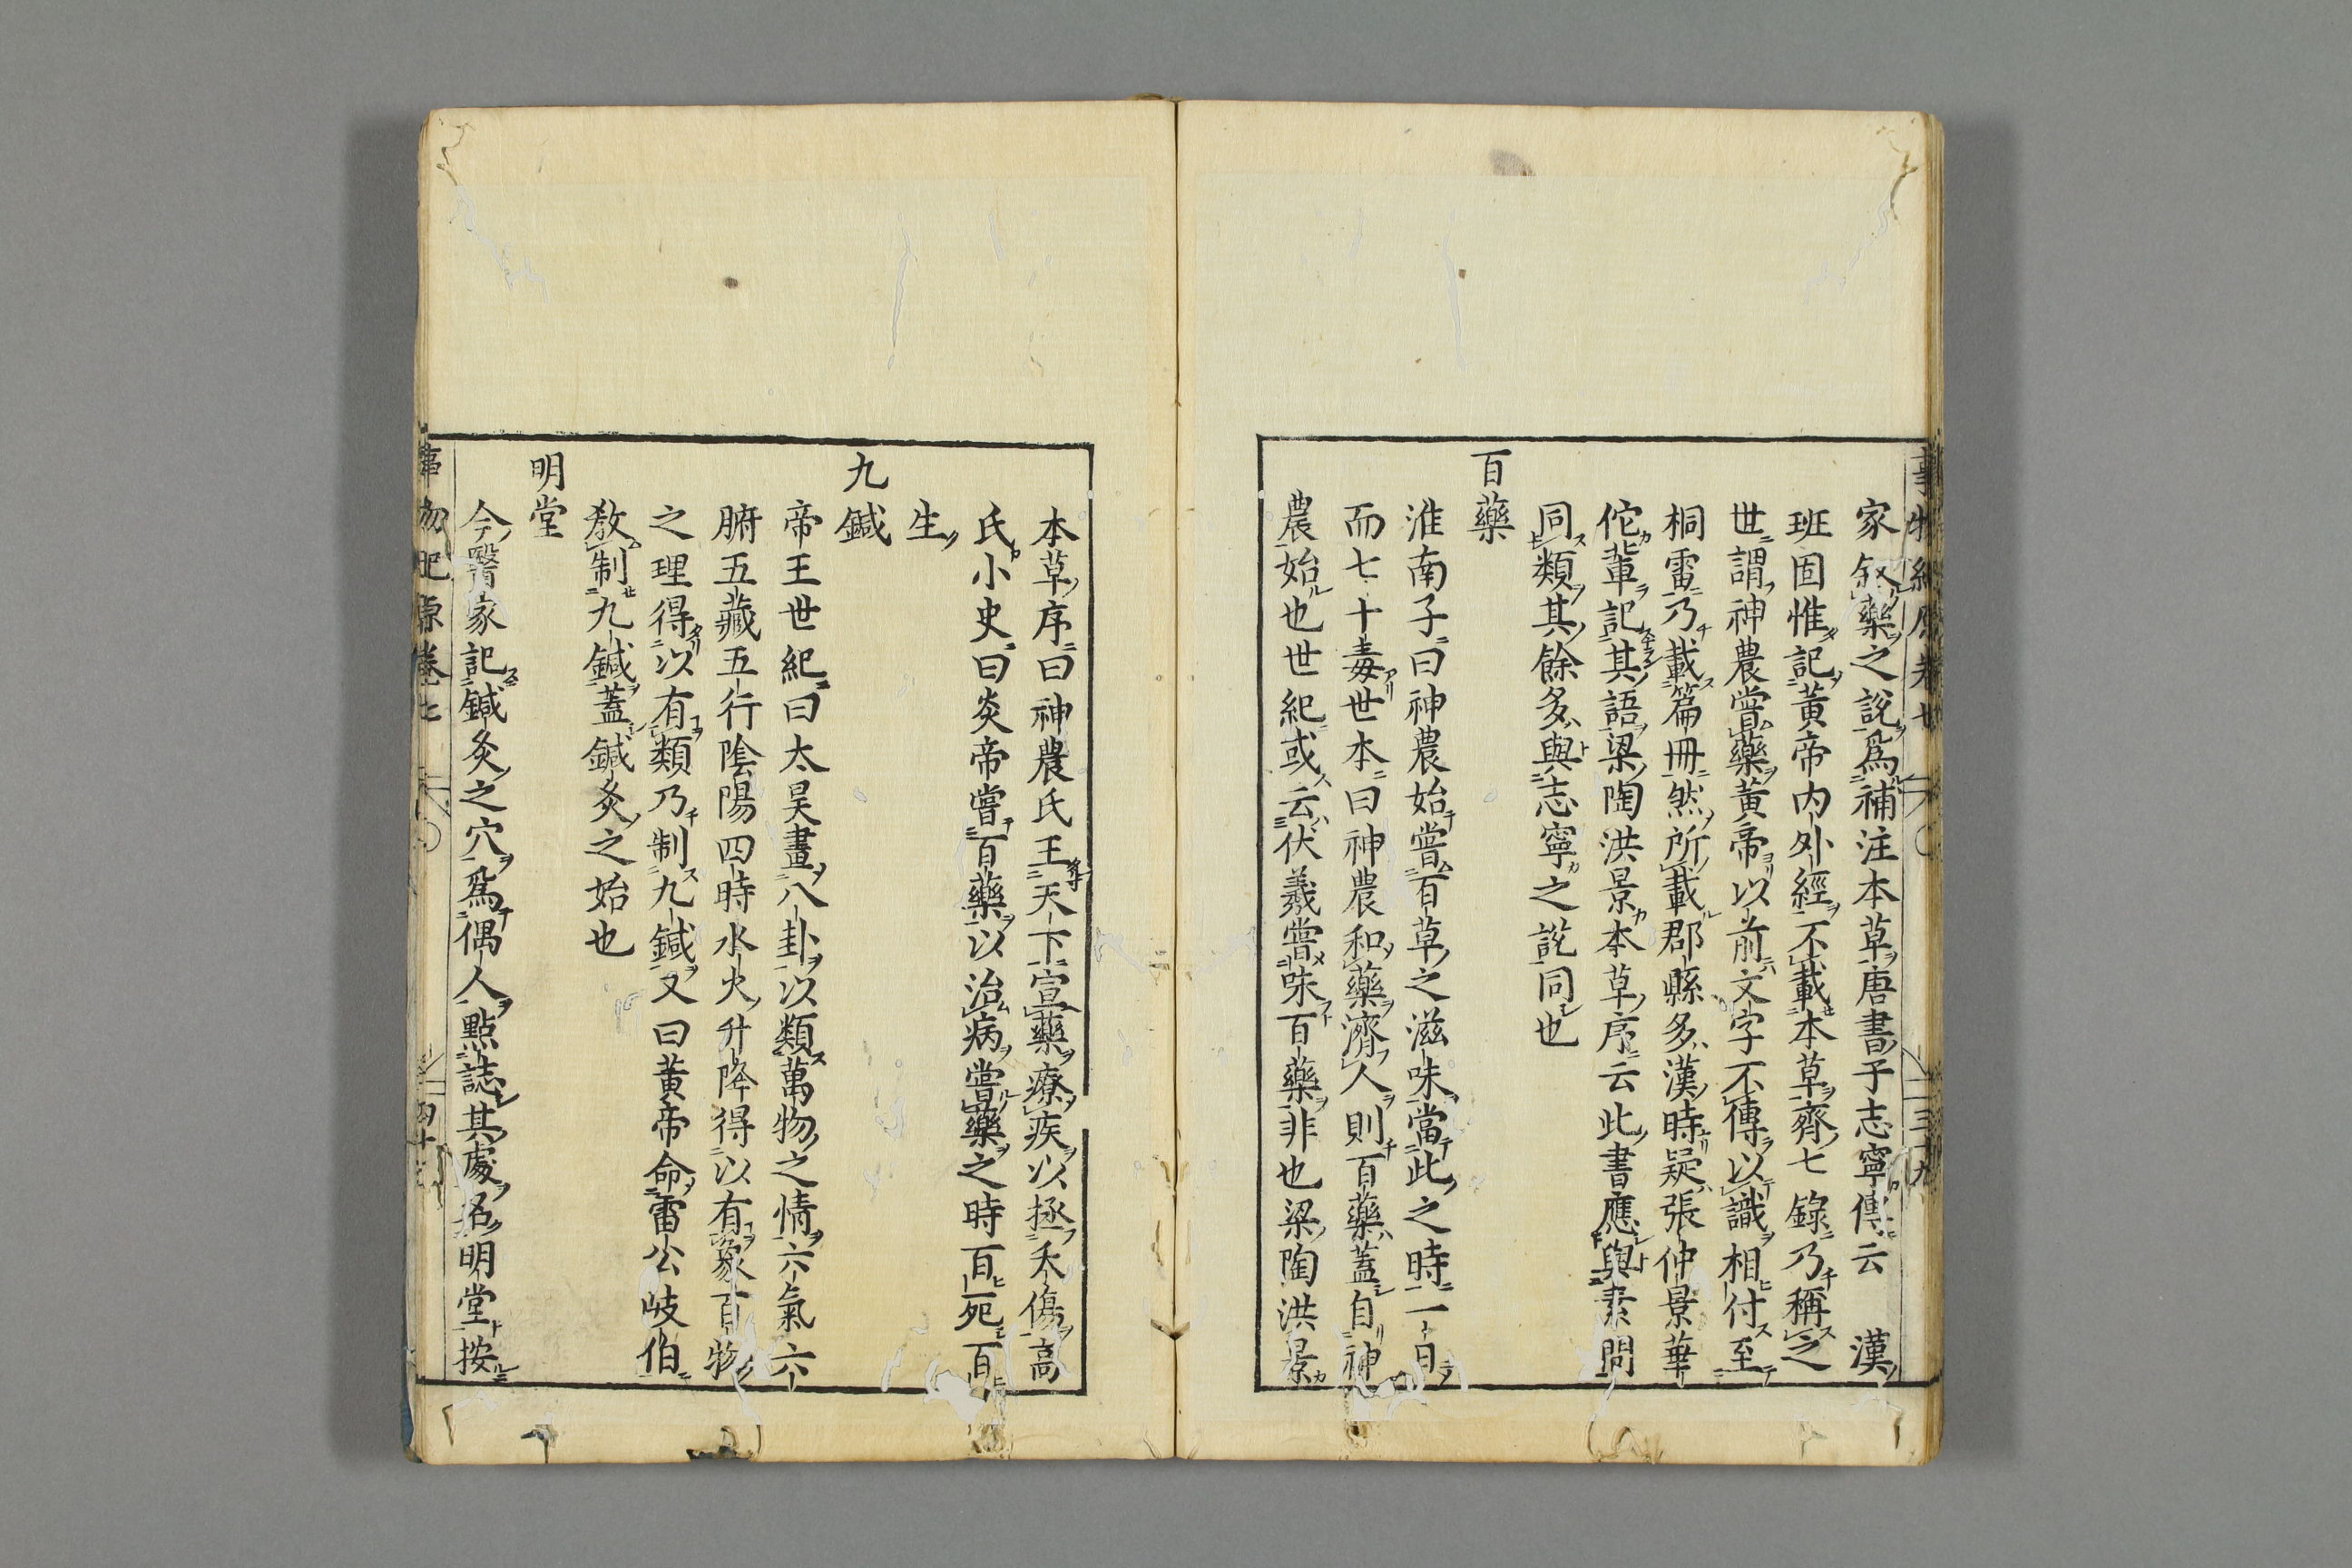 家叙藥之說爲補注本草唐書于志寧傳云　漢
班固惟記黃帝内外經不載本草齊七錄乃稱之
世謂神農嘗藥黃帝以前文字不傳以識相付至
桐雷乃載篇冊然所載郡縣多漢時疑張仲景華
佗輩記其語梁陶洪景本草序云此書應與素問
同類其餘多與志寧之說同也
百藥
淮南子曰神農始嘗百草之滋味當此之時一日
而七十毒世本曰神農和藥濟人則百藥蓋自神
農始也世紀或云伏羲嘗味百藥非也梁陶洪景
本草序曰神農氏王天下宣藥療疾以拯夭傷高
氏小史曰炎帝嘗百藥以治病嘗藥之時百死百
生
九鍼
帝王世紀曰太昊畫八卦以類萬物之情六氣六
腑五藏五行陰陽四時水火升降得以有象百物
之理得以有類乃制九鍼又曰黃帝命雷公岐伯
教制九鍼蓋鍼灸之始也
明堂
今醫家記鍼灸之穴爲偶人點誌其處名明堂按